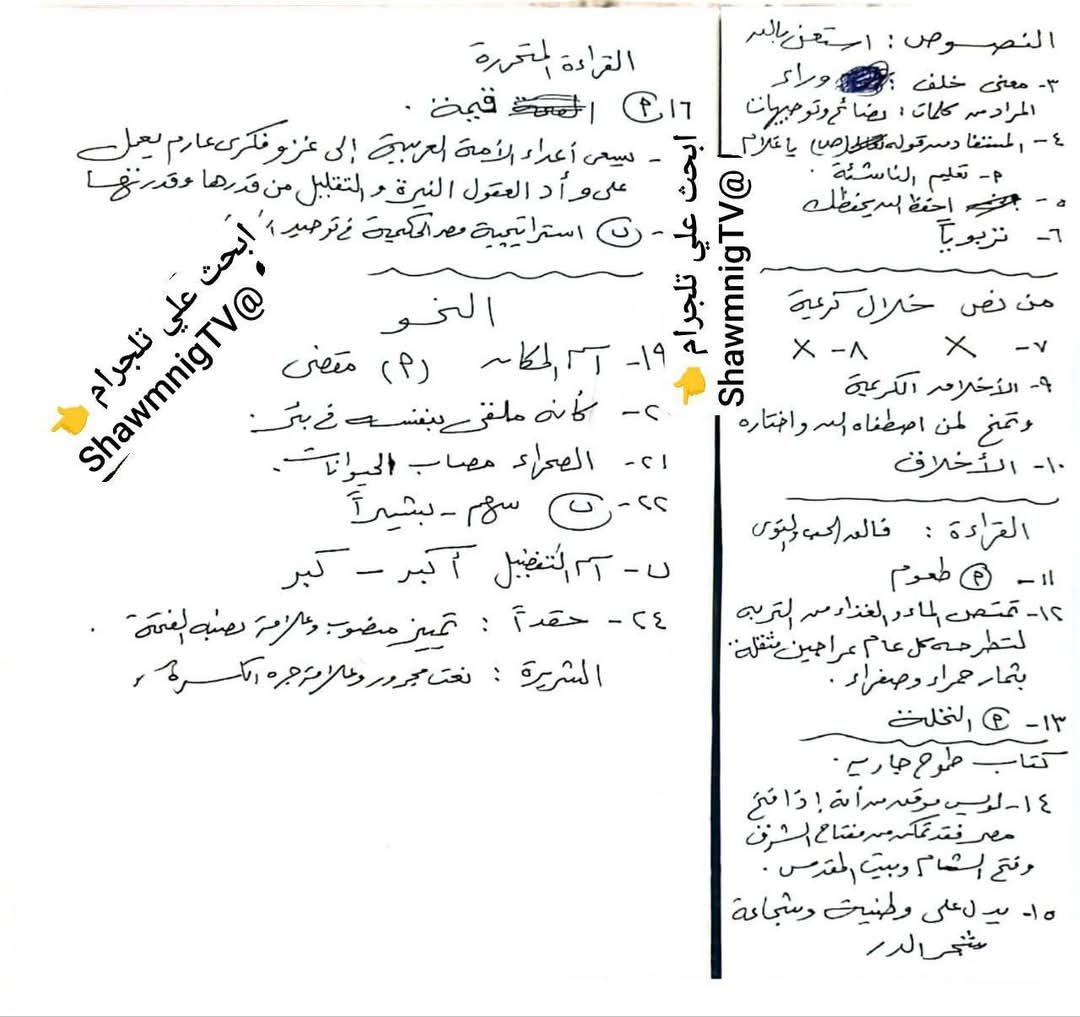 النصوص : استعن بالله
٣- معنى خلف : وراء
المراد من كلمات : نصائح وتوجيهات
٤- المستفاد من قوله (ص) يا غلام
م- تعليم الناشئة .
٥- احفظ الله يحفظك
٦- تربوياً
من نص خلال كريمة
٧- X ٨- X
٩- الأخلاق الكريمة
وتمنح لمن اصطفاه الله واختاره
١٠- الأخلاق
القراءة : فالق الحب والنوى
١١- م طعوم
١٢- تمتص الماء والغذاء من التربه
لتطرحه كل عام عراجين مثقلة
بثمار حمراء وصفراء .
١٣- م النخلة
كتاب طموح جارية .
١٤- لويس موقن من أنه إذا فتح
مصر فقد تمكن من مفتاح الشرق
وفتح الشام وبيت المقدس .
١٥- يدل على وطنية وشجاعة
شجر الدر
القراءة المتحررة
١٦. م قيمة .
- يسعى أعداء الأمة العربية إلى غزو فكرى عارم يعمل
على وأد العقول النيرة والتقليل من قدرها وقدرتها
- ن استراتيجية مصر الحكيمة في توحيد
النحو
١٩- اسم المكان (م) مقضى
٢٠- كأنه ملقى بنفسه في بئر .
٢١- الصحراء مصاب الحيوانات .
٢٢- ن سهم - بشيراً
ن- اسم التفضيل أكبر - كبر
٢٤- حقداً : تمييز منصوب وعلامة نصبه الفتحة .
الشريرة : نعت مجرور وعلامة جره الكسرة
ابحث علي تلجرام 👈
ShawmnigTV@
ابحث علي تلجرام 👈
ShawmnigTV@